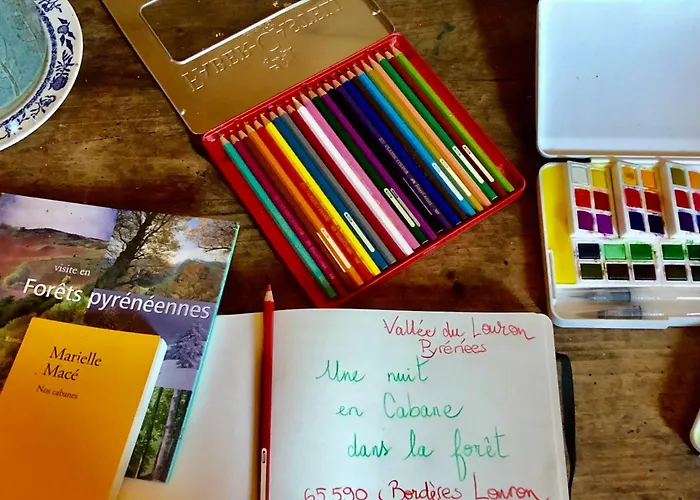 FABER-CASTELL
visite en
Forêts pyrénéennes
Marielle
Macé
Nos cabanes
Vallée du Louron
Pyrénées
Une nuit
en Cabane
dans la forêt
65590 Bordères Louron